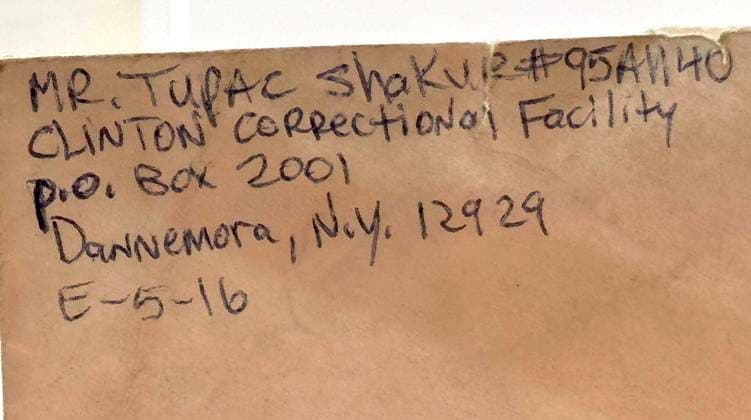 MR. TUPAC ShaKUR#95A1140
CLINTON CORRectional Facility
p.o. Box 2001
Dannemora, N.y. 12929
E-5-16